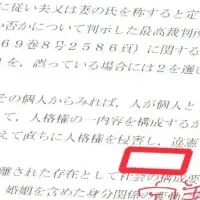 に従い夫又は妻の氏を称すると定
か否かについて判示した最高裁判所
69巻8号2586頁)に関する
1を、誤っている場合には2を選び
その個人からみれば、人が個人と
て、人格権の一内容を構成するか
えて直ちに人格権を侵害し、違憲
離された存在として社会の構成要
婚姻を含めた身分関係の変動